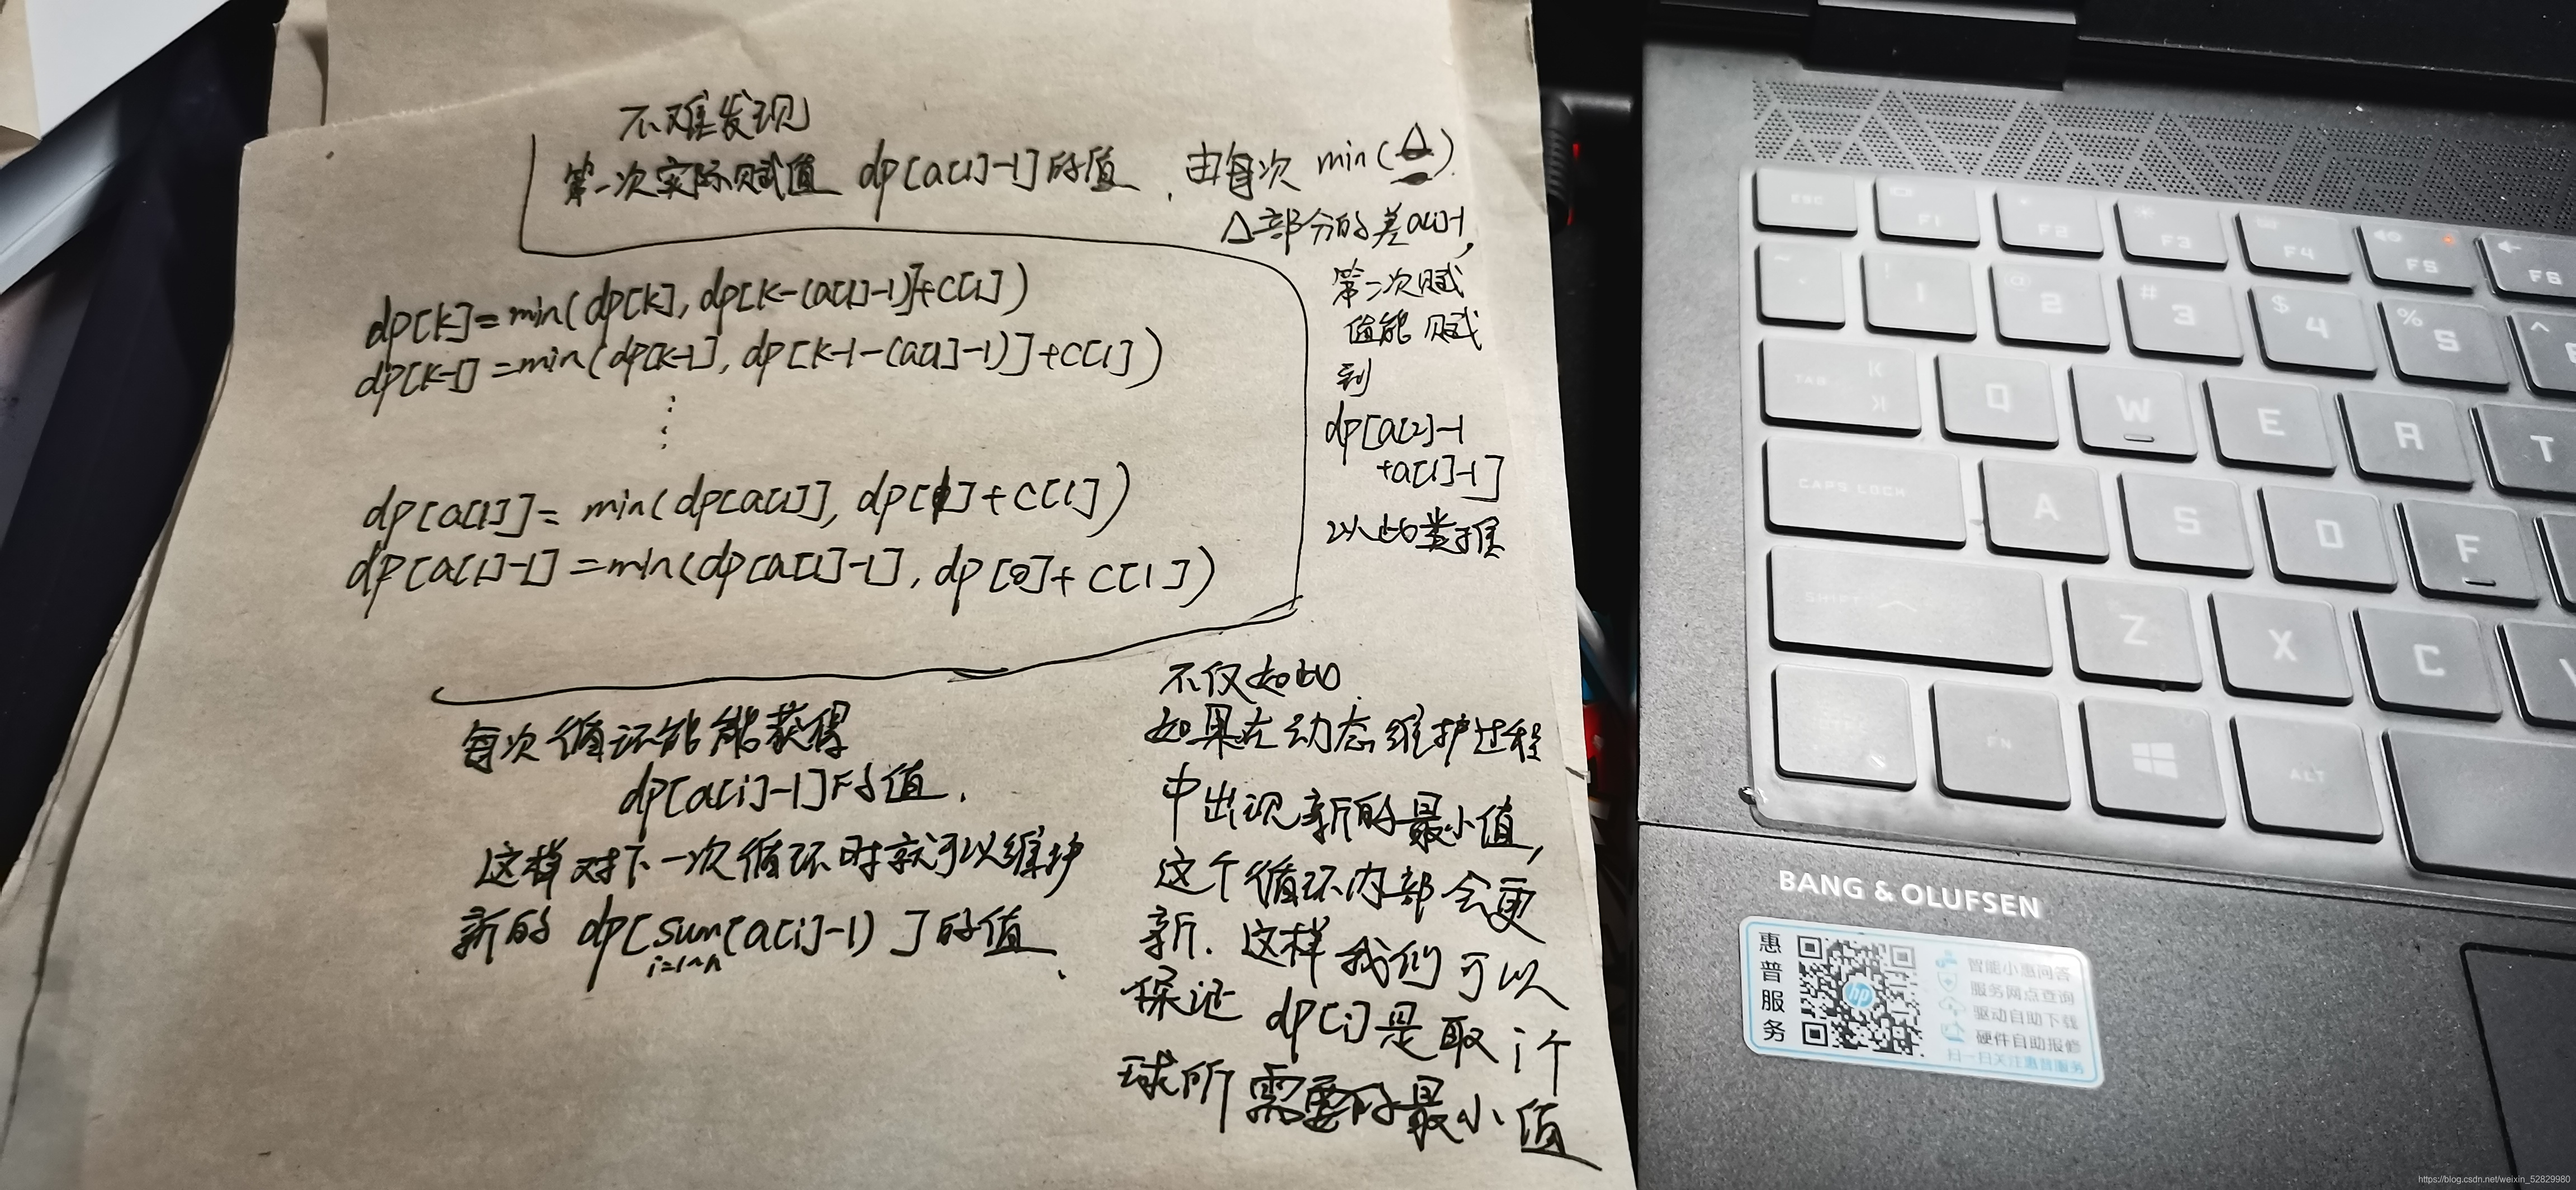 不难发现
第一次实际赋值 dp[a[1]-1]的值. 由每次 min(△).
△部分的差a[1]-1,
第二次赋
值能赋
到
dp[a[2]-1
+a[1]-1]
以此类推
dp[k]=min(dp[k],dp[k-(a[1]-1)]+C[1])
dp[k-1]=min(dp[k-1],dp[k-1-(a[1]-1)]+C[1])
⋮
dp[a[1]]=min(dp[a[1]],dp[1]+C[1])
dp[a[1]-1]=min(dp[a[1]-1],dp[0]+C[1])
每次循环能能获得
dp[a[i]-1]的值.
这样对下一次循环时就可以维护
新的 dp[sum(a[i]-1)]的值、
i=1~n
不仅如此.
如果在动态维护过程
中出现新的最小值,
这个循环内部会更
新.这样我们可以
保证 dp[i]是取i个
球所需要的最小值
ESC
F1
F2
F3
F4
F5
F6
~
`
!
1
@
2
#
3
$
4
%
5
^
TAB
Q
W
E
R
T
CAPS LOCK
A
S
D
F
SHIFT
Z
X
C
FN
ALT
BANG & OLUFSEN
惠普服务
hp
智能小惠问答
服务网点查询
驱动自助下载
硬件自助报修
扫一扫关注惠普服务
https://blog.csdn.net/weixin_52829980